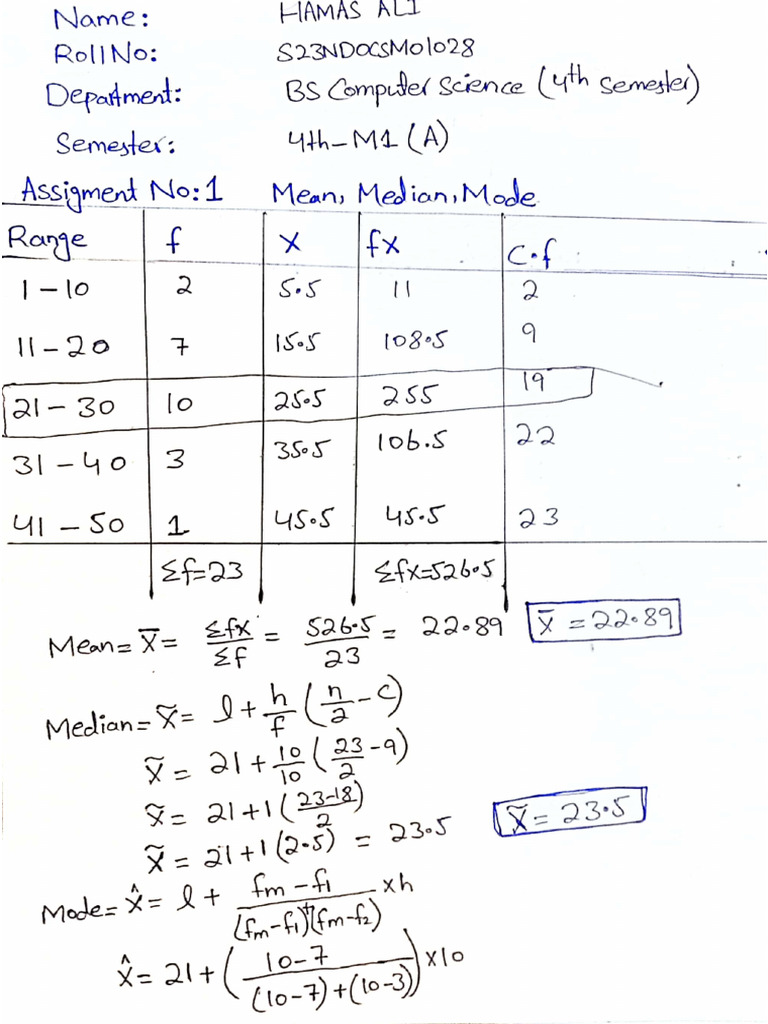 Name: HAMAS ALI
Roll No: S23NDOCSM01028
Department: BS Computer Science (4th semester)
Semester: 4th-M1 (A)
Assigment No:1 Mean, Median, Mode
Range f x fx C.f
1-10 2 5.5 11 2
11-20 7 15.5 108.5 9
21-30 10 25.5 255 19
31-40 3 35.5 106.5 22
41-50 1 45.5 45.5 23
Σf=23 Σfx=526.5
Mean = x̄ = Σfx/Σf = 526.5/23 = 22.89 x̄ = 22.89
Median = x̃ = l + h/f (n/2 - c)
x̃ = 21 + 10/10 (23/2 - 9)
x̃ = 21 + 1 ((23-18)/2)
x̃ = 21 + 1 (2.5) = 23.5 x̃ = 23.5
Mode = x̂ = l + (fm - f1)/((fm-f1)+(fm-f2)) × h
x̂ = 21 + ((10-7)/((10-7)+(10-3))) × 10